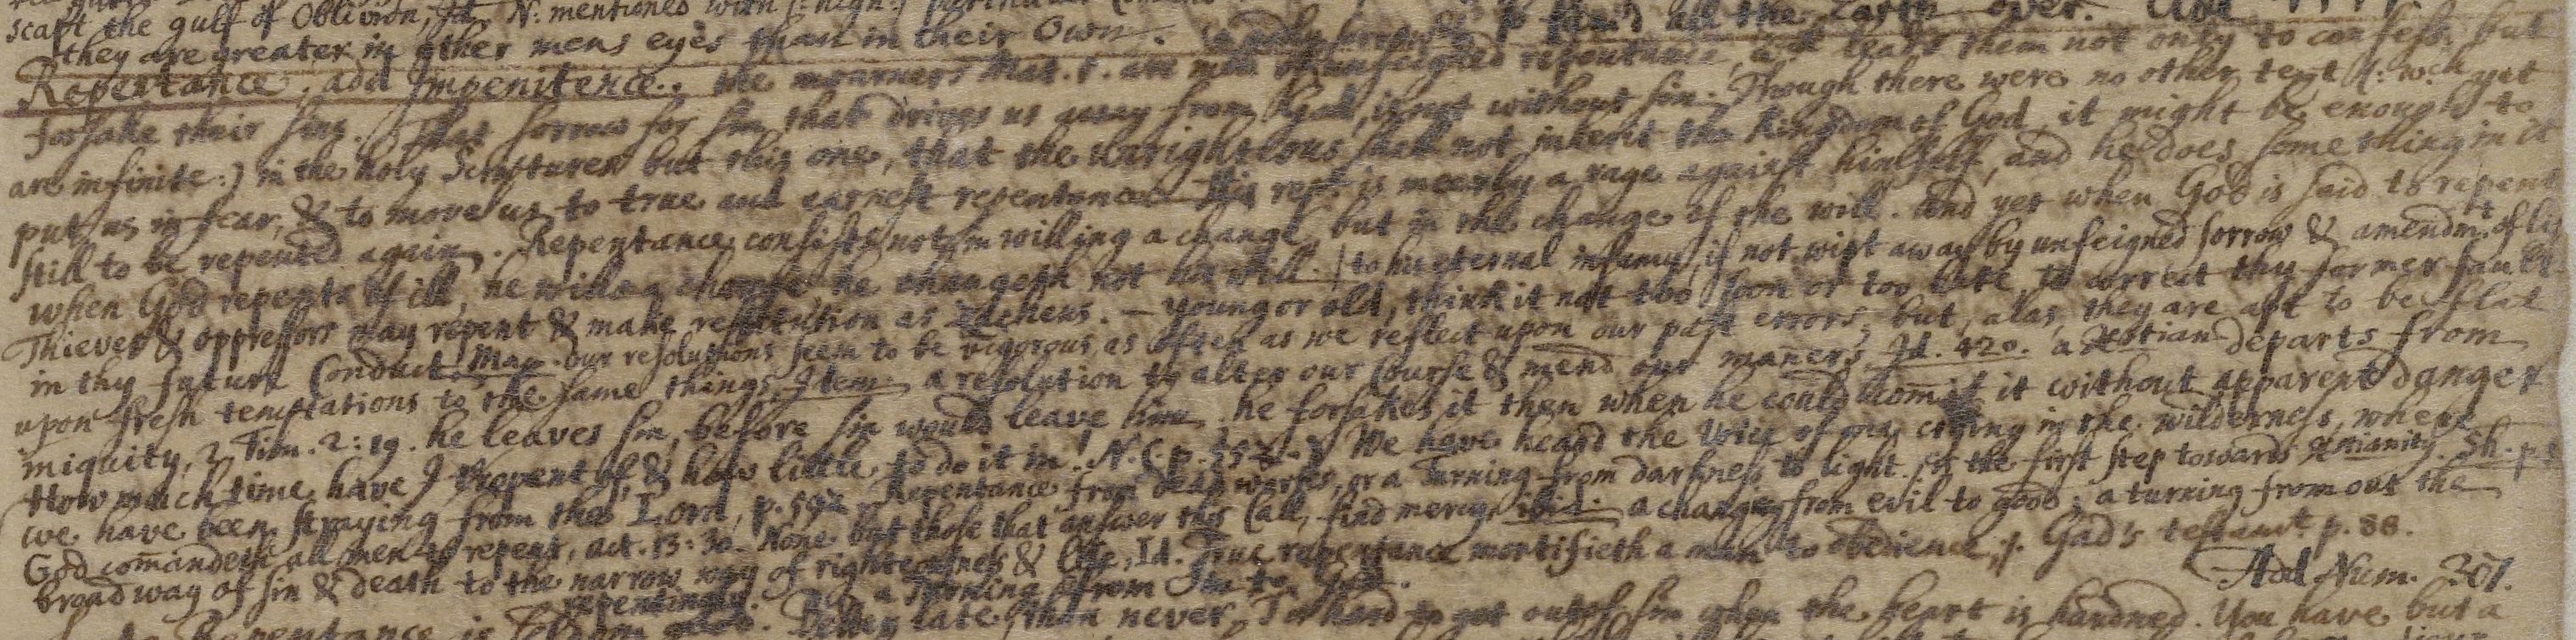 scapt the gulf of Oblivion, Id. N: mentioned with
they are greater in other mens eyes than in their Own. fear'd all the Earth over. And
Repentance. add Impenitence. the mourners Mat. 5. are men of unfeigned repentance, leads them not only to confess, but
forsake their sins. That sorrow for sin that drives us away from God, is not without sin. Though there were no other text (: wch yet
are infinite:) in the holy Scriptures but this one, that the unrighteous shall not inherit the Kingdom of God, it might be enough to
put us in fear, & to move us to true and earnest repentance. His rept. is meerly a rage against himself, and he does some thing in it
still to be repented again. Repentance consists not in willing a change, but in the change of the will. and yet when God is said to repent
when God repents of ill, he willeth change, he changeth not his will. | to his eternal infamy, if not wipt away by unfeigned sorrow & amendmt. of lif
Thieves & oppressors may repent & make restitution as Zacheus. – young or old, think it not too soon or too late, to correct thy former faults
in thy future Conduct. Man. our resolutions seem to be vigorous, as often as we reflect upon our past errors; but, alas, they are apt to be flat
upon fresh temptations to the same things. Item a resolution to alter our Course & mend our maners. Id. 420. a Xstian departs from
iniquity, 2 Tim. 2: 19. he leaves sin, before sin would leave him, he forsakes it then when he could comit it without apparent danger
How much time have I to repent of, & how little to do it in! N. C. p. We have heard the Voice of one crying in the wilderness, where
we have been straying from the Lord, p. 592. Repentance from dead works, or a Turning from darkness to light. is the first step towards Xtianity. Sh. p.
God comandeth all men to repent, act. 13: 30. None but those that answer this Call, find mercy, ibid. a changing from evil to good; a turning from out the
broad way of sin & death to the narrow way of righteousness & life, Id. True repentance mortifieth a man to obedience, s. Gad's testamt. p. 88.
repentingly. a Turning from Sin to God. Add Num. 307.
Repentance is seldom Better late than never, Tis hard to get out of sin when the heart is hardned. You have but a